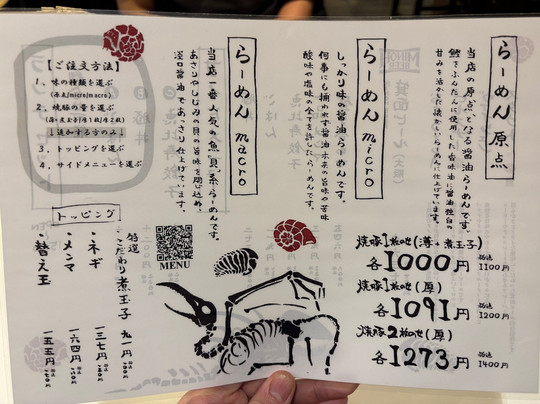 らーめん 原点
当店の原点となる醤油らーめんです。
鯵をふんだんに使用した香味油に醤油独自の
甘みを活かした懐かしいらーめんに仕上げています。
らーめん micro
しっかり味の醤油らーめんです。
何事にも捕われず醤油本来の旨味や苦味
酸味や塩味の全てを許したらーめんです。
らーめん macro
当店一番人気の魚貝系らーめんです。
あさりやしじみの貝の旨味を閉じ込め、
淡口醤油であっさり仕上げています。
【ご注文方法】
1、味の種類を選ぶ
(原点/micro/macro)
2、焼豚の量を選ぶ
↓追加する方のみ↓
3、トッピングを選ぶ
4、サイドメニューを選ぶ
トッピング
特選
・こだわり煮玉子 九一円
・ネギ 一三七円
・メンマ 一六四円
・替え玉 一五五円
MENU
焼豚1枚のせ(薄+煮玉子)
各1000円 税込1100円
焼豚1枚のせ(厚)
各1091円 税込1200円
焼豚2枚のせ(厚)
各1273円 税込1400円